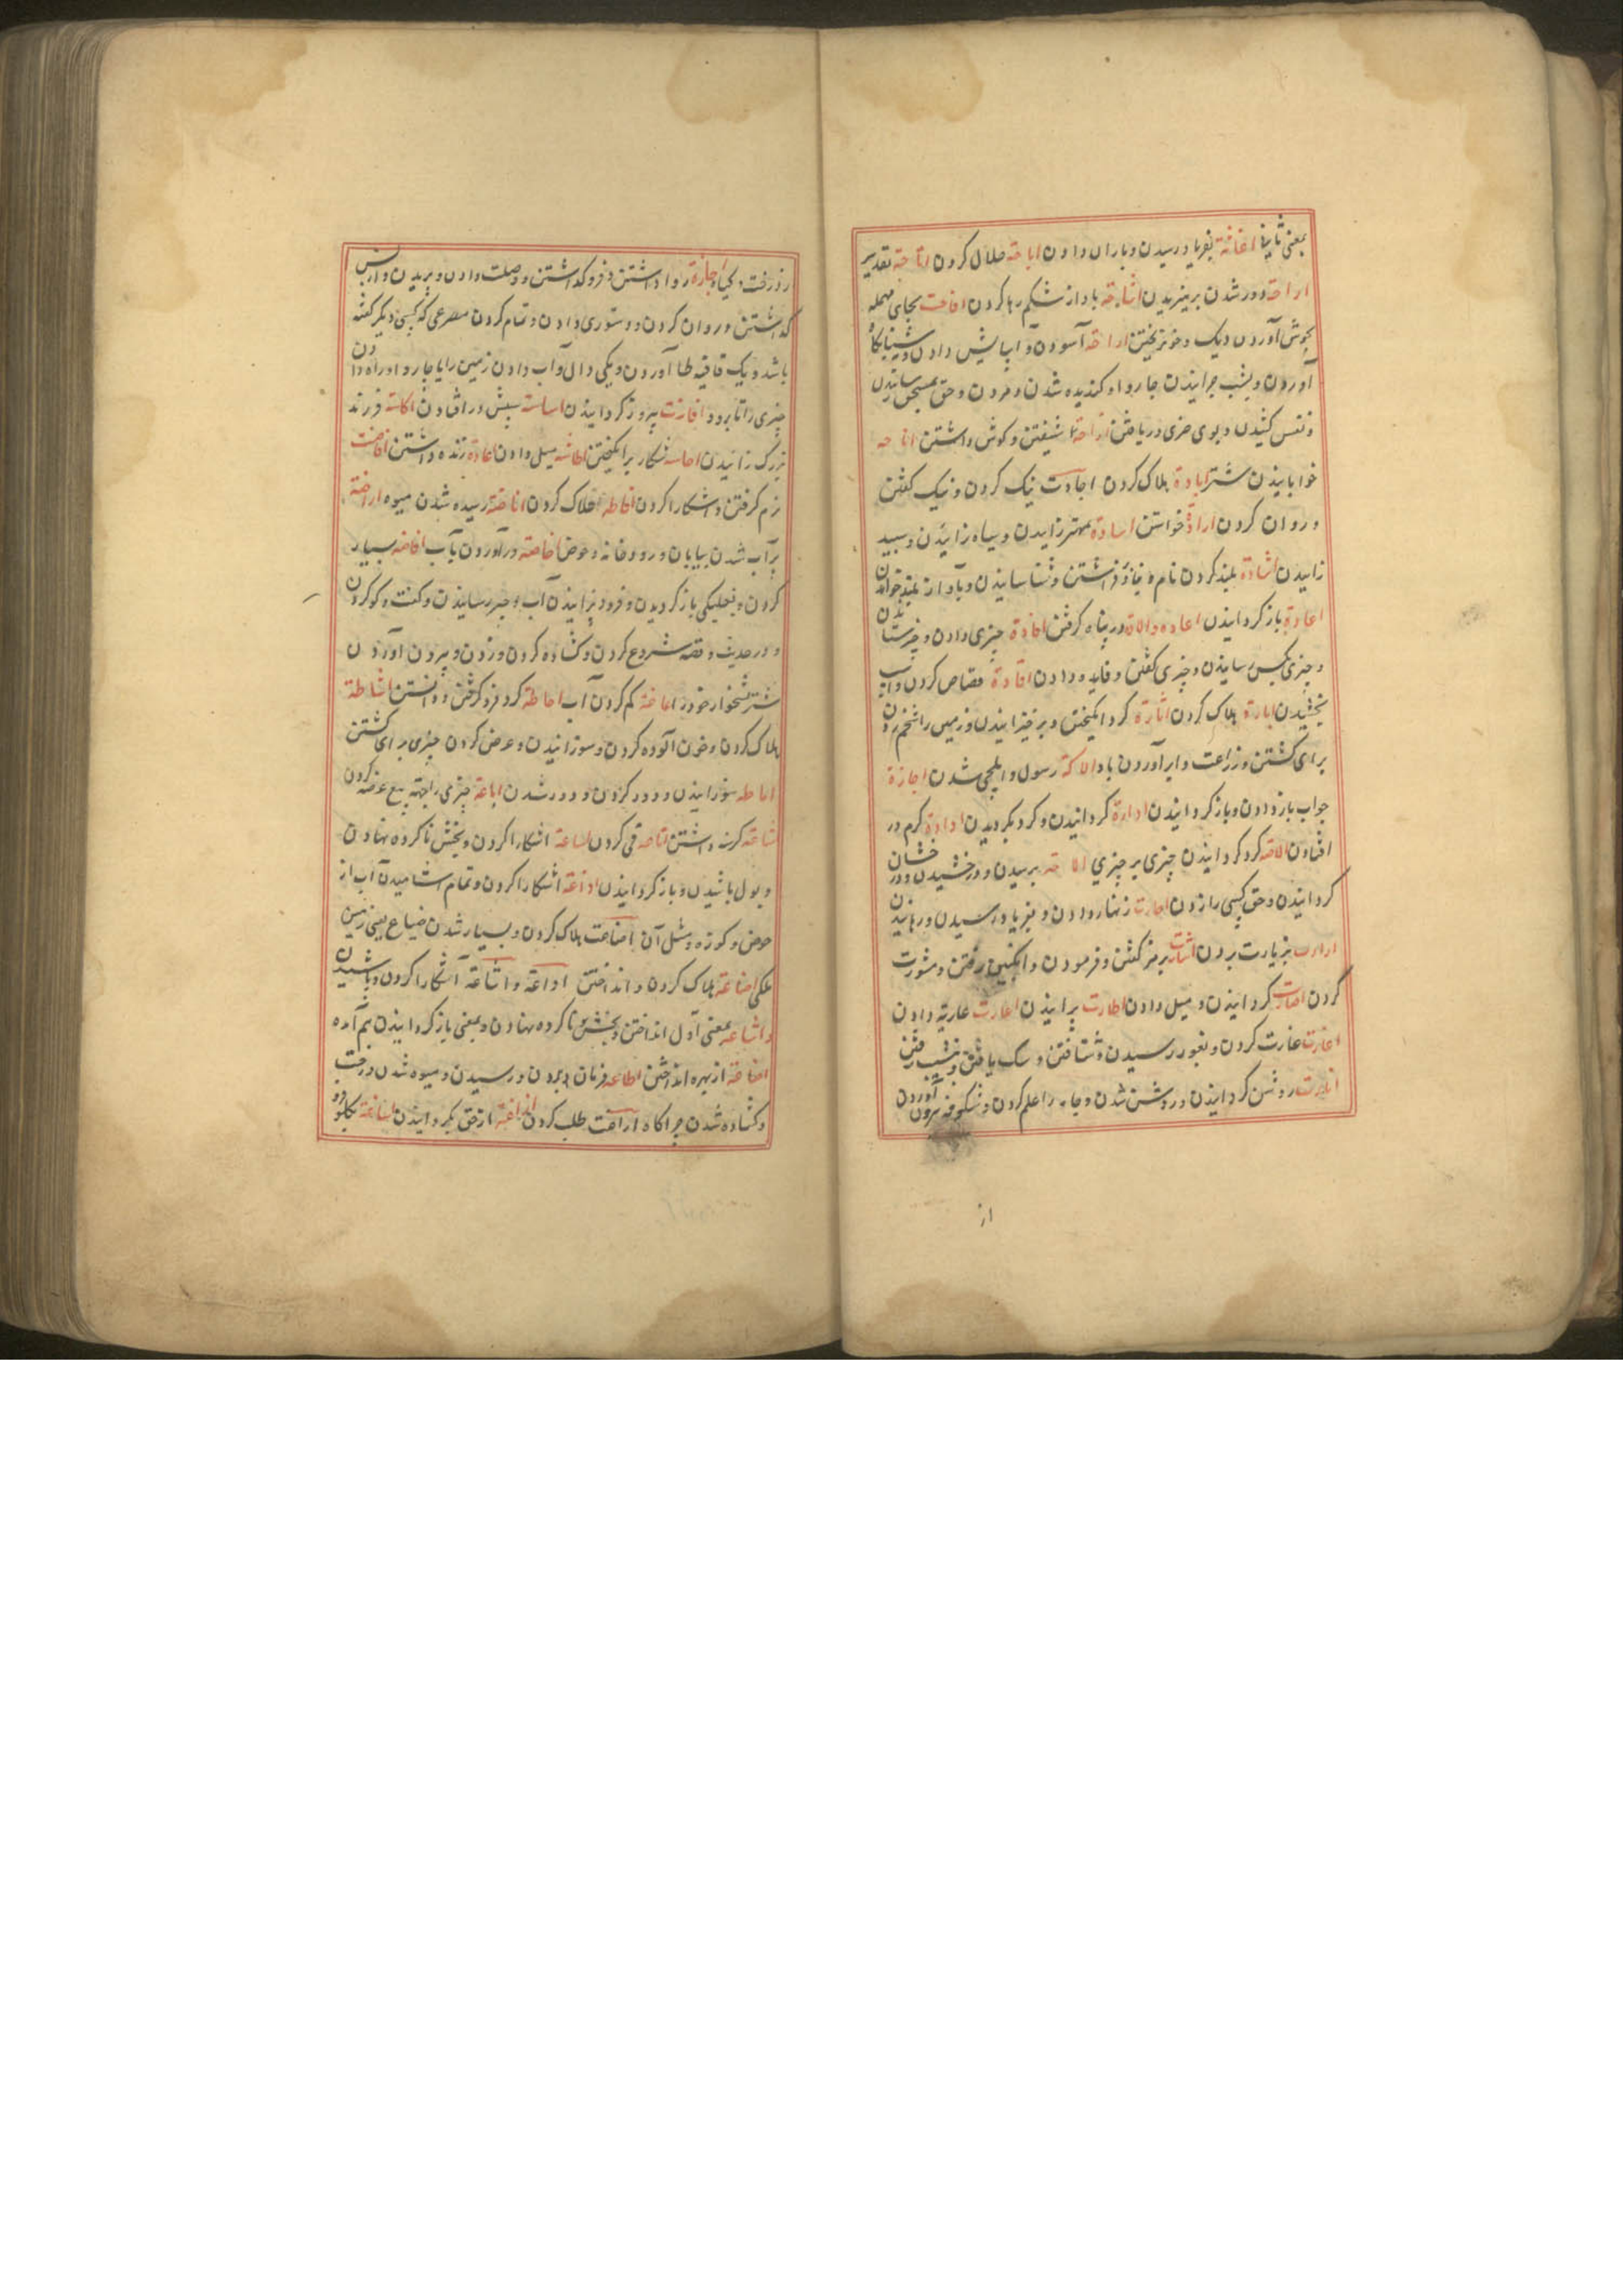 بمعنی ثانیا اغاثة بفریاد رسیدن و باران دادن اباحة حلال کردن اتاحة تقدیر
اراحة دور شدن اشاحة باد از شکم رها کردن افاحت بجای مهمله
بجوش آوردن دیک و خونریختن اراحة آسودن و آسایش دادن و شبانگاه
آوردن و بشب چرانیدن چاروا و کندیده شدن و مردن و حق بمستحق رسانیدن
و نفس کشیدن و بوی چیزی دریافتن شیفتن و کوش داشتن اناحه
خوابانیدن شتر ابادة هلاک کردن اجادت نیک کردن و نیک کفتن
و روان کردن ارادة خواستن اسادة مهتر زاییدن و سیاه زائیدن و سپید
زاییدن اشادة بلند کردن نام و بنا و افراشتن و شناسانیدن و بآواز بلند خواندن
اعادة باز کردانیدن اعاده والاة در پناه کرفتن افادة چیزی دادن و خرستادن
و چیزی بکس رسانیدن و چیزی کفتن و فایده دادن اقادة قصاص کردن و اسب
بخشیدن ابارة هلاک کردن اثارة کرد انکیختن و برخیزانیدن و زمین را شخم زدن
برای کشتن و زراعت و ابر آوردن باد الاکة رسول و ایلچی شدن اجازة
جواب باز دادن و باز کردانیدن ادارة کردانیدن و کرد بکردیدن ادادة کرم در
افتادن الاصة کرد کردانیدن چیزی بر چیزی الاحة بریدن و درخشیدن و درخشان
کردانیدن و حق کسی را زدن اجارت زنهار دادن و بفریاد رسیدن و رهانیدن
ازارت بزیارت بردن اشارت برمز کفتن و فرمودن و انکبین رفتن و مشورت
کردن اصارت کردانیدن و میل دادن اطارت پرانیدن اعارت عاریة دادن
اغارت غارت کردن و بغور رسیدن و شتافتن و سک یافتن و بنشیب رفتن
انارت روشن کردانیدن و روشن شدن و جامه را علم کردن و شکوفه بیرون آوردن
از
درخت و کیاه اجازة روا داشتن و فروکذاشتن و وصلت دادن و بریدن و از پس
کذاشتن و روان کردن و دستوری دادن و تمام کردن مصرعی که کسی دیکر کفته
باشد و یک قافیه طا آوردن و یکی دال و آب دادن زمین را یا چاروا و راه دادن
چیزی را تا برود افازت پیروز کردانیدن اساسة سپش در افتادن اکاسة فرزند
زیرک زائیدن احاسه شکار برانکیختن اطاشه میل دادن اعادة زنده داشتن افاضت
نرم کرفتن و اشکارا کردن افاطه هلاک کردن اناضة رسیده شدن میوه اراضة
پر آب شدن بیابان و رودخانه و حوض اخاضة درآوردن بآب افاضه بسیار
کردن و بنعلیکی باز کردیدن و فرود ریزانیدن آب و خبر رسانیدن و کفت و کو کردن
و در حدیث و قصه شروع کردن و کشاده کردن و زدن و بیرون آوردن
شتر نشخوار خود را اغاضة کم کردن آب احاطة کرد فرو کرفتن و دانستن اشاطة
هلاک کردن و خون آلوده کردن و سوزانیدن و عرض کردن چیزی برای کشتن
اماطه سوزانیدن و دور کردن و دور شدن اباعة چیزی را بجهة بیع عرضه کردن
اجاعة کرسنه داشتن اتاعه قی کردن اشاعة اشکارا کردن و بخش ناکرده نهادن
و بول پاشیدن و باز کردانیدن اذاعة اشکارا کردن و تمام اشامیدن آب از
حوض و کوزه و مثل آن اضاعت هلاک کردن و بسیار شدن ضیاع یعنی زمین
ملکی اضاعة هلاک کردن و انداختن اذاعة و اشاعة آشکارا کردن و پاشیدن
و اشاعه بمعنی اول انداختن و بخش ناکرده نهادن و بمعنی باز کردانیدن هم آمده
اضاعة از بهره انداختن اطاعه فرمان بردن و رسیدن و میوه شدن درخت
و کشاده شدن چراکاه اراغت طلب کردن ازاغة از حق بکردانیدن اساغة بکلو فرو